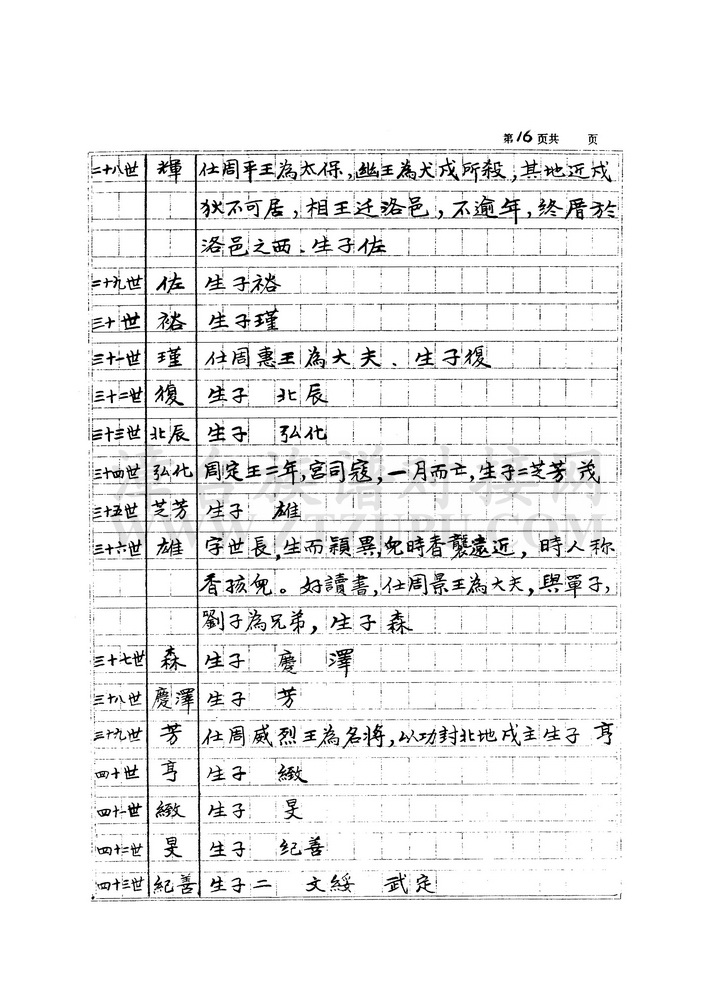 第16页共 页
二十八世 輝 仕周平王為太保,幽王為犬戎所殺,其地近戎
狄不可居,相王迁洛邑,不逾年,終厝於
洛邑之西、生子佐
二十九世 佐 生子裕
三十世 裕 生子瑾
三十一世 瑾 仕周惠王為大夫、生子復
三十二世 復 生子 北辰
三十三世 北辰 生子 弘化
三十四世 弘化 周定王二年,宮司寇,一月而亡,生子二芝芳 茂
三十五世 芝芳 生子 雄
三十六世 雄 字世長,生而穎異,兒時香襲遠近,時人称
香孩兒。好讀書,仕周景王為大夫,與單子,
劉子為兄弟,生子森
三十七世 森 生子 慶 澤
三十八世 慶澤 生子 芳
三十九世 芳 仕周威烈王為名將,以功封北地戍主生子 亨
四十世 亨 生子 緻
四十一世 緻 生子 旻
四十二世 旻 生子 紀善
四十三世 紀善 生子二 文綏 武定
漳台族谱对接网
WWW.ZTZUPU.COM